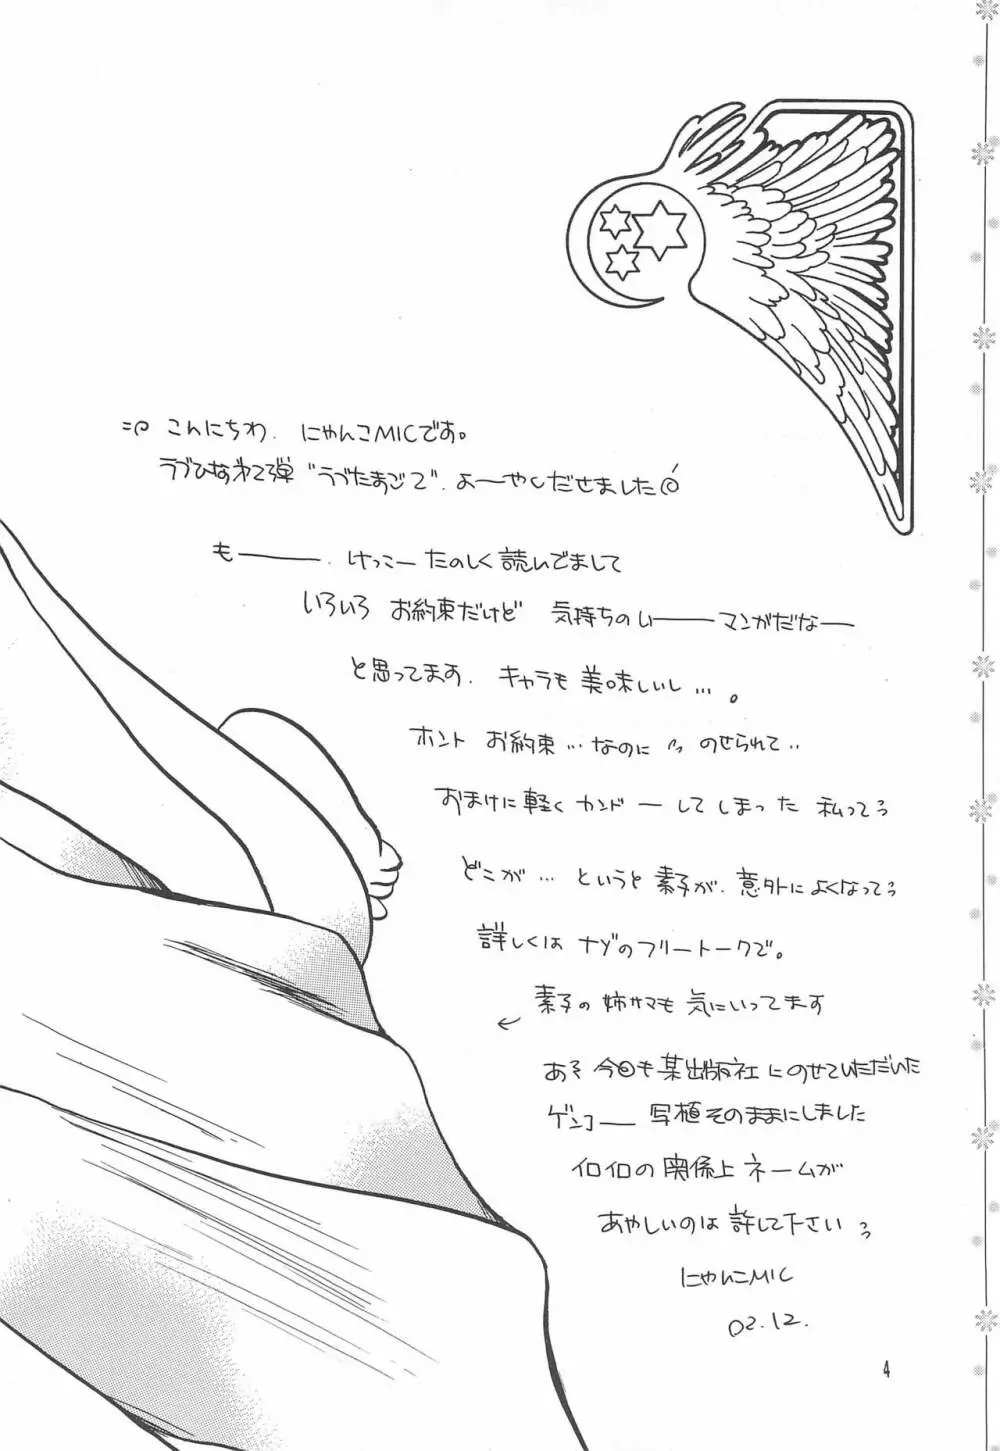 こんにちわ. にゃんこMICです。
ラブひな第2弾 "ラブたまごて". よーやくだせました
もー――. けっこー たのしく 読んでまして
いろいろ お約束だけど 気持ちのいー――マンガだなー
と思ってます. キャラも 美味しいし…。
ホント お約束…なのに のせられて..
おまけに軽く カンドーしてしまった 私って
どこが… というと 素子が. 意外に よくなって
詳しくは ナゾのフリートークで。
素子の 姉サマも 気にいってます
あそ 今回も 某出版社 にのせていただいた
ゲンコー 写植そのままにしました
イロイロの 関係上 ネームが
あやしいのは 許して下さい
にゃんこMIC
02.12.
4